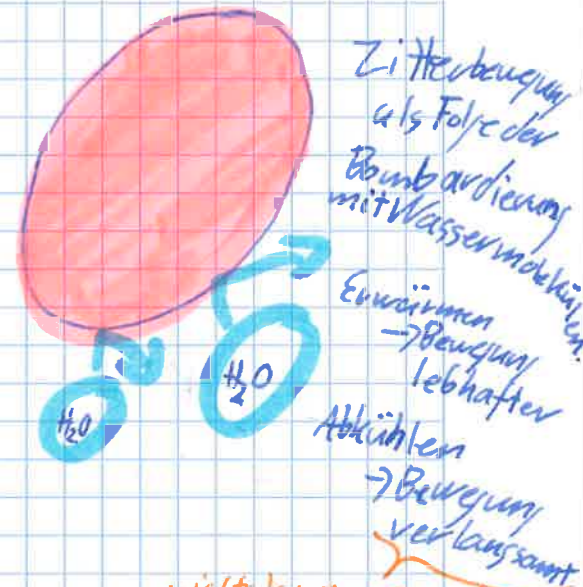 Zitterbewegung
als Folge der
Bombardierung
mit Wassermolekülen.
Erwärmen
→ Bewegung
lebhafter
Abkühlen
→ Bewegung
verlangsamt
H₂O
H₂O